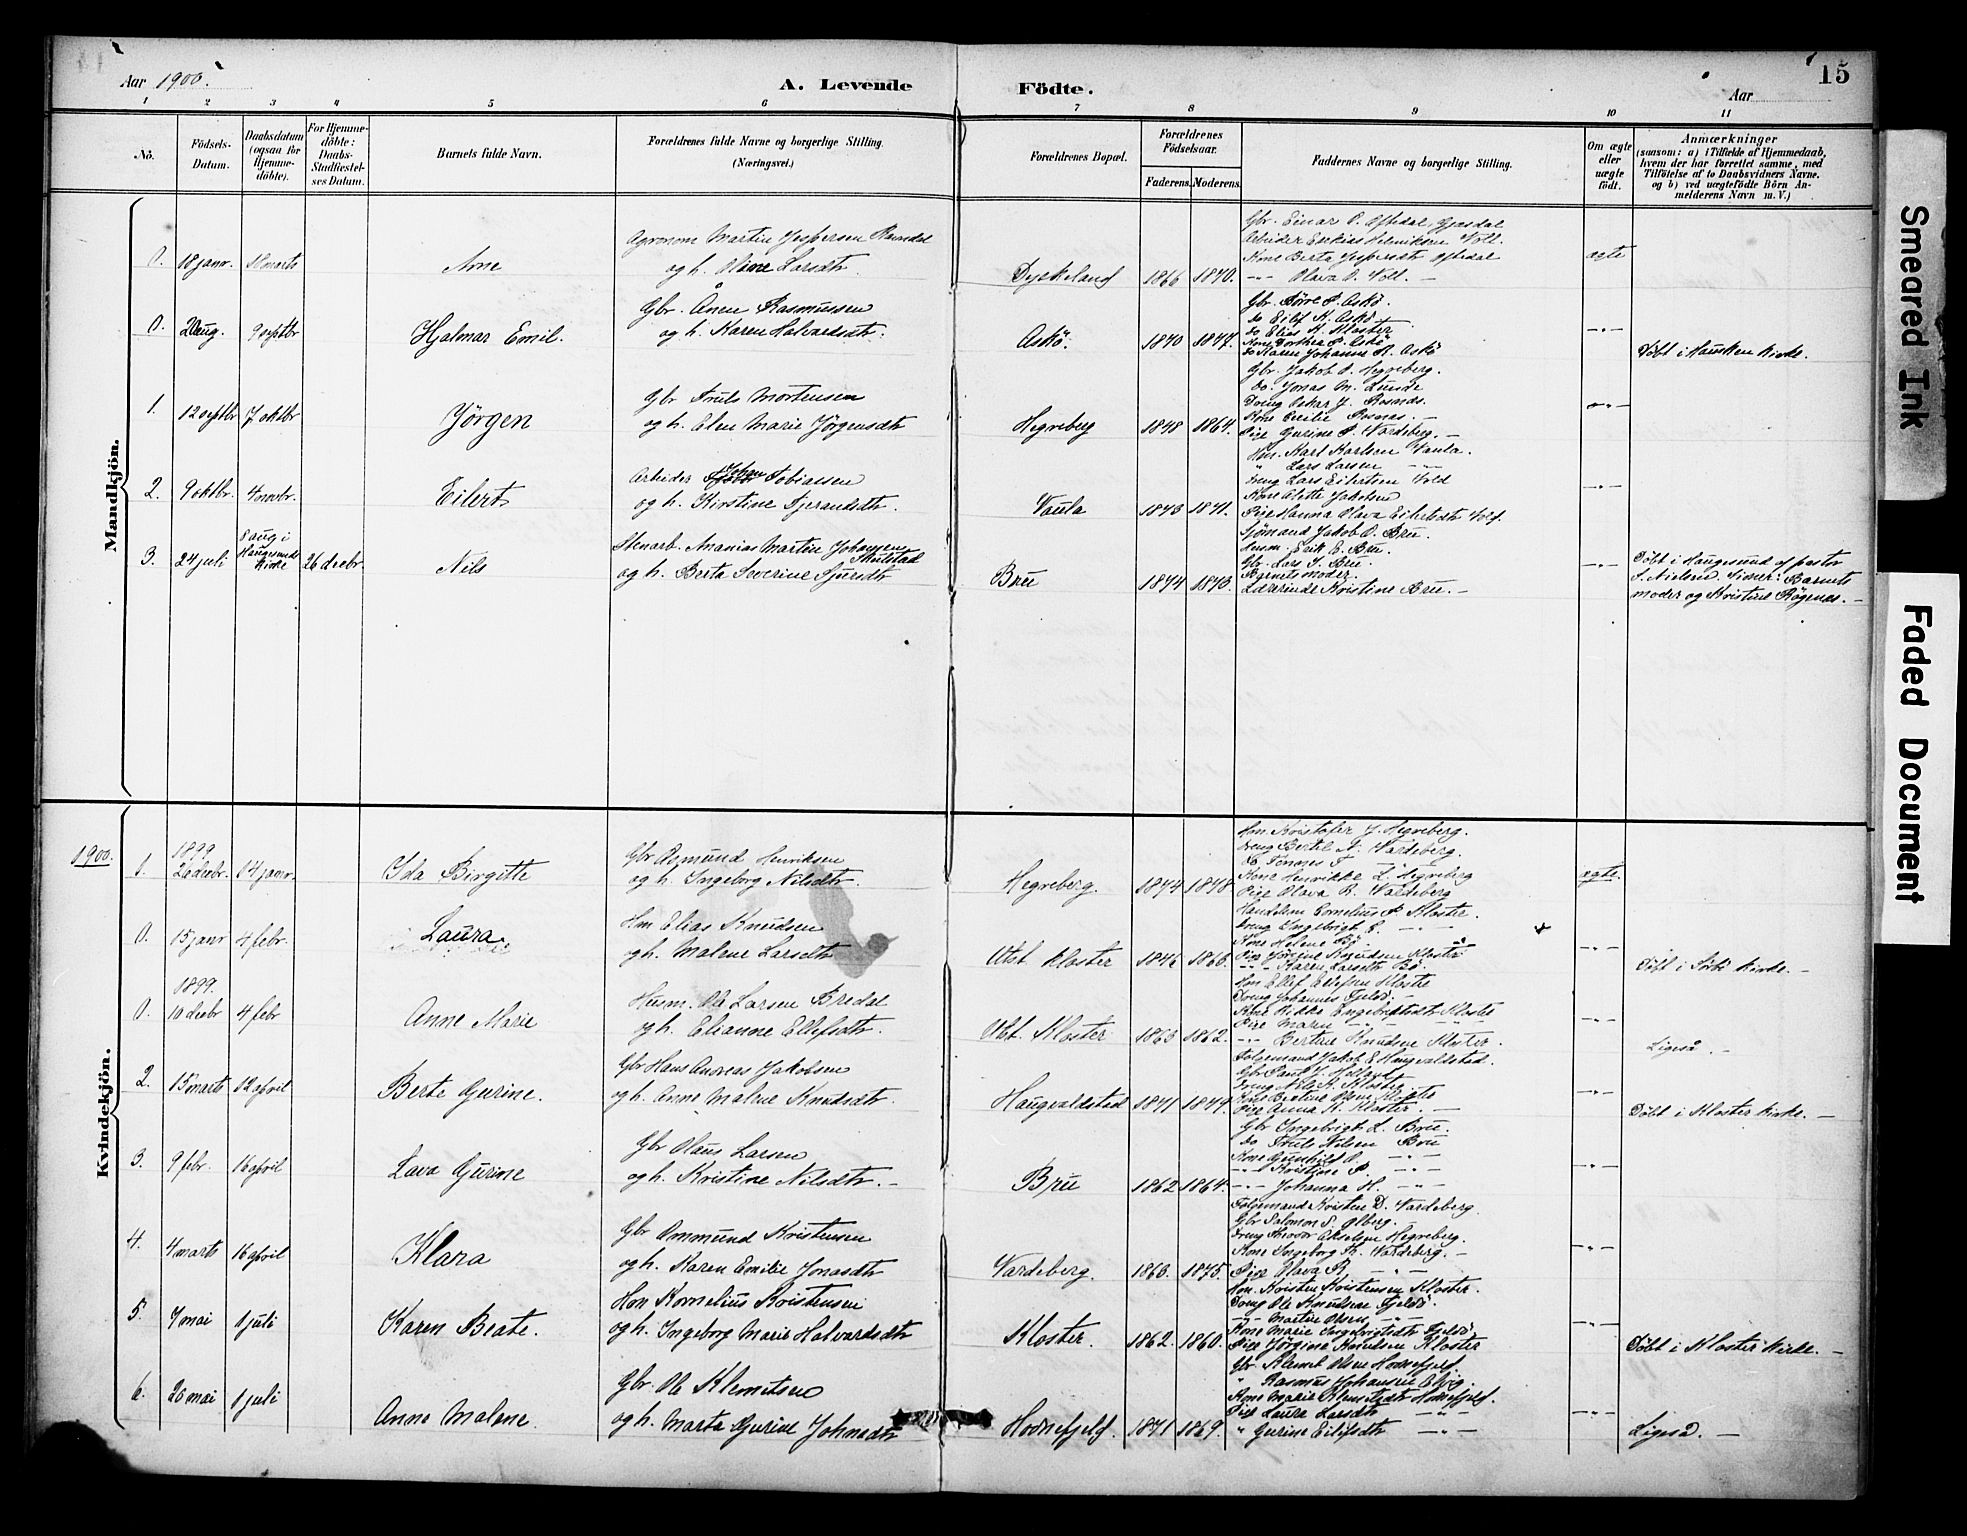 15
Aar 1900.
A. Levende Födte.
Aar
1 2 3 4 5 6 7 8 9 10 11
No.
Födsels-Datum.
Daabsdatum (ogsaa for Hjemme-döbte).
For Hjemme-döbte: Daabs-Stadfæstel-ses Datum.
Barnets fulde Navn.
Forældrenes fulde Navne og borgerlige Stilling. (Næringsvei.)
Forældrenes Bopæl.
Forældrenes Födselsaar.
Faderens. Moderens.
Faddernes Navne og borgerlige Stilling.
Om ægte eller uægte födt.
Anmærkninger
(saasom: a) i Tilfælde af Hjemmedaab, hvem der har forrettet samme, med Tilföielse af to Daabsvidners Navne. og b) ved uægtefödte Börn An-melderens Navn m. V.)
Mandkjön.
0. 18 janr. 11 marts Arne
Agronom Martin Jespersen
og h. Oline Larsdtr.
Dyskeland 1866 1870.
Gbr. Einar P. Oftedal, Gjesdal
Arbeider Esekias Henriksen Voll.
Kone Berta Jespersdtr Oftedal
-"- Olava O. Voll. -
ægte
0. 20 aug. 9 septbr Hjalmar Emil.
Gbr. Ånen Rasmussen
og h. Karen Halvardsdtr.
Askö. 1870 1877.
Gbr. Börre P. Askö.
do Eilif K. Askö
do Elias K. Kloster
Kone Dorthea P. Askö
do Karen Johanne R. Askö
-"-
Döbt i Hausken kirke.
1. 12 septbr 7 oktbr Jörgen
Gbr Truls Mortensen
og h. Elen Marie Jörgensdtr
Hegreberg 1848 1864.
Gbr. Jakob O. Hegreberg.
do. Jonas M. Lunde
Dreng Oskar J. Rosnes.
Kone Cecilie Rosnes. -
Pige Gurine P. Vardeberg. -
-"-
2. 9 oktbr. 4 novbr. Eilert
Arbeider Johan Tobiassen
og h. Kirstine Tjerandsdtr.
Vaula 1873 1871.
Hm. Karl Karlsen Vaula.
" Lars Larsen -"-
Dreng Lars Eilertsen Vold
Kone Alette Jakobsen
Pige Hanna Olava Eilertsdtr Vold.
-"-
3. 24 juli 8 aug i Haugesunds kirke 26 decbr. Nils
Stenarb. Ananias Martin Johansen Skulstad
og h. Berta Severine Sjursdtr
Bru 1874 1873.
Sjömand Jakob O. Bru.
Husm. Erik E. Bru.
Gbr. Lars T. Bru.
Barnets moder.
Lærerinde Kristine Bru. -
-"-
Döbt i Haugesund af pastor
S. Nielsen. Vidner: Barnets
moder og Kristine Rögenes. -
Kvindekjön.
1900.
1. 1899 26 decbr. 14 janr. Ida Birgitte
Gbr Asmund Henriksen
og h. Ingeborg Nilsdtr.
Hegreberg. 1874 1878.
Hm. Kristofer J. Hegreberg.
Dreng Bertel A. Vardeberg.
do Tönnes T
Kone Henrikke L. Hegreberg
Pige Olava R. Vardeberg
ægte.
0. 15 janr 4 febr. Laura
Hm Elias Knudsen
og h. Malene Larsdtr
Utst. kloster 1846 1863.
Handelsm Cornelius P. Kloster.
Dreng Ingebrigt E. -"-
Kone Helene Bö.
Pige Jörgine Knudsen Kloster
-"- Karen Larsdtr Bö.
-"-
Döbt i Sörbö kirke. -
0. 1899. 10 decbr 4 febr Anne Marie
Husm. Ole Larsen Bredal
og h. Elianne Ellefsdtr.
Utst. Kloster 1863 1862.
Hm Ellef Ellefsen Kloster
Dreng Johannes Fjeldö. -
Kone Rikke Engebretsdtr Kloster
Pige Maren -"-
-"- Bertine Knudsen Kloster.
-"-
Ligeså. -
2. 15 marts 12 april Berte Gurine.
Gbr Hans Andreas Jakobsen
og h. Anne Malene Knudsdtr.
Haugvaldstad 1871 1877.
Folgemand Jakob E Haugvaldstad.
Gbr Paul J. Helland
Dreng Nils K. Kloster.
Kone Bertine Olsen Kloster
Pige Anna K. Kloster. -
-"-
Döbt i Kloster kirke. -
3. 9 febr. 16 april Lava Gurine
Gbr Olaus Larsen
og h. Kristine Nilsdtr. -
Bru 1862 1864.
Gbr Ingebrigt L. Bru.
do Truls Nilsen Bru
Kone Gunhild O. -"-
-"- Kristine P. -"-
-"- Johanna H. -"-
-"-
4. 4 marts 16 april Klara
Gbr Ommund Kristensen
og h. Karen Emilie Jonasdtr
Vardeberg. 1863. 1875.
Folgemand Kristen D. Vardeberg
Gbr Salomon S. Ölberg. -
Dreng Thevor Akselsen Hegreberg.
Kone Ingeborg Th. Vardeberg. -
Pige Olava R. -"-
-"-
5. 7 mai 1 juli Karen Beate.
Hm Kornelius Kristensen
og h. Ingeborg Marie Halvardsdtr
Kloster. 1862. 1860.
Hm. Kristen Kristensen Kloster.
Dreng Ole Knudsen Fjeldö.
-"- Martin Olsen -"-
Kone Marie Ingebrigtsdtr Fjeldö
Pige Jörgine Knudsen Kloster
-"-
Döbt i Kloster kirke. -
6. 20 mai 1 juli Anne Malene.
Gbr. Ole Klemetsen
og h. Marta Gurine Johnsdtr
Hodnefjeld. 1871 1869.
Gbr. Klemet Olsen Hodnefjeld.
" Rasmus Johansen
Kone Marie Klemetsdtr Hodnefjeld.
Pige Laura Larsdtr -"-
" Gurine Eilifsdtr -"-
-"-
Ligeså. -
Smeared Ink
Faded Document